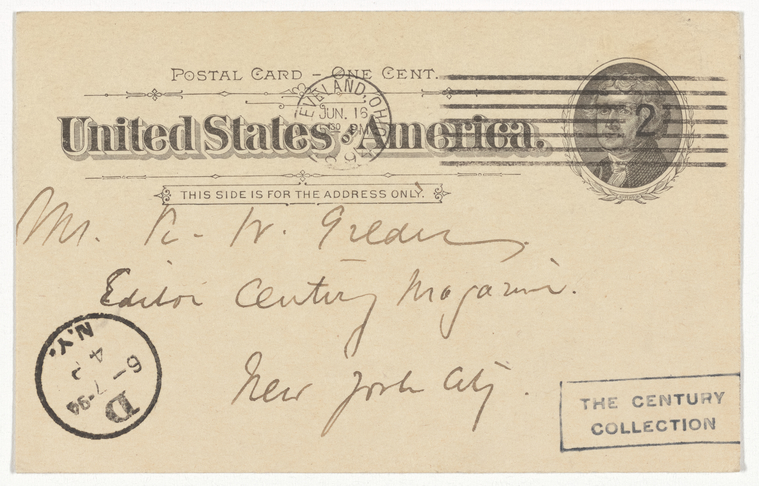 POSTAL CARD – ONE CENT.
United States America.
THIS SIDE IS FOR THE ADDRESS ONLY.
EVELAND, OHIO
JUN. 16
PM
2
Mr. R. W. Gilder
Editor Century Magazine.
New York City.
D
6-7-94
N.Y.
THE CENTURY
COLLECTION